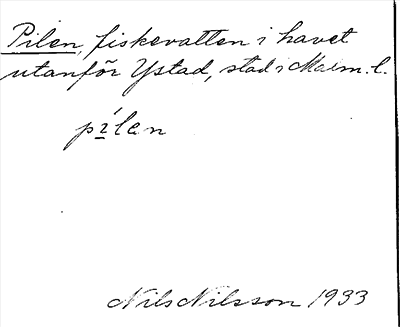 Pilen, fiskevatten i havet
utanför Ystad, stad i Malm. l.
pílen
Nils Nilsson 1933